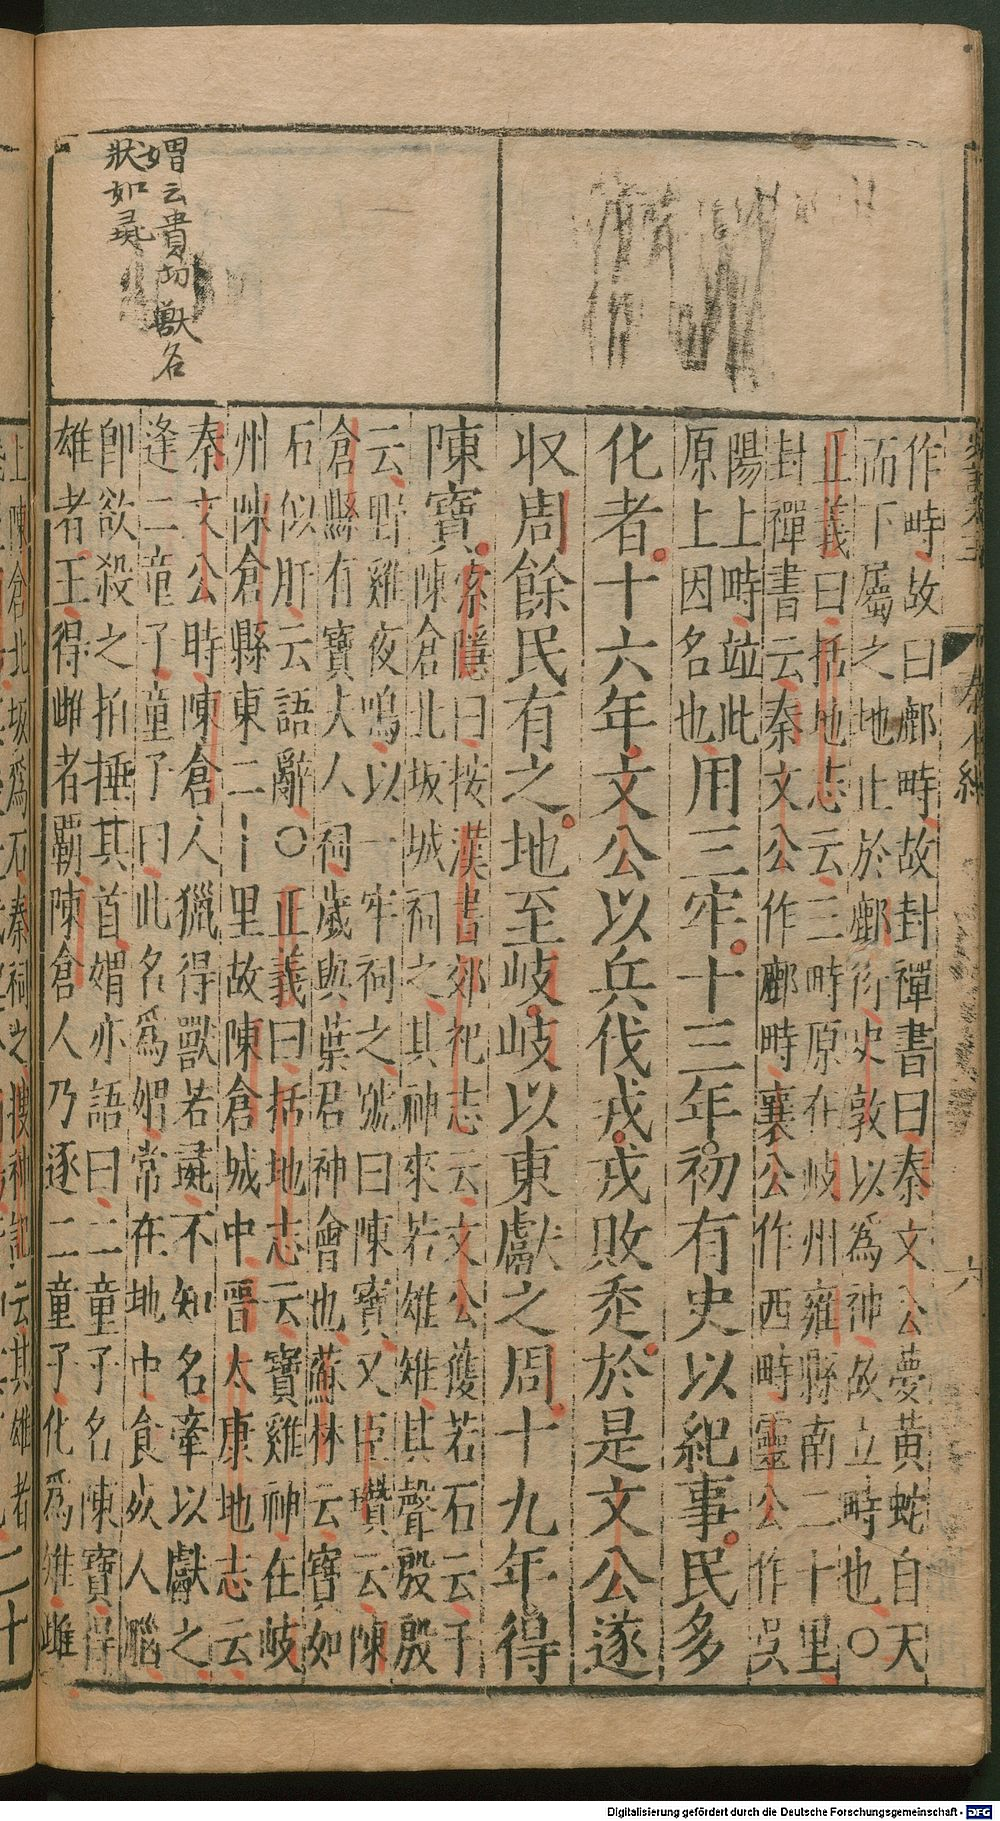 媦云貴切獸名
狀如彘
秦本紀
六
作畤故曰鄜畤故封禪書曰秦文公夢黃蛇自天
而下屬之地止於鄜衍史敦以爲神故立畤也〇
正義曰括地志云三畤原在岐州雍縣南二十里
封禪書云秦文公作鄜畤襄公作西畤靈公作吳
陽上畤竝此
原上因名也
用三牢十三年初有史以紀事民多
化者十六年文公以兵伐戎戎敗走於是文公遂
収周餘民有之地至岐岐以東獻之周十九年得
陳寶
索隱曰按漢書郊祀志云文公獲若石云于
陳倉北坂城祠之其神來若雄雉其聲殷殷
云野雞夜鳴以一牢祠之號曰陳寶又臣瓚云陳
倉縣有寶夫人祠歲與葉君神會也蘇林云寶如
石似肝云語辭〇正義曰括地志云寶雞神在岐
州陳倉縣東二十里故陳倉城中晉太康地志云
秦文公時陳倉人獵得獸若彘不知名牽以獻之
逢二童子童子曰此名爲媦常在地中食死人腦
卽欲殺之拍捶其首媦亦語曰二童子名陳寶得
雄者王得雌者霸陳倉人乃逐二童子化爲雉雌
上陳倉北坂爲石秦祠之搜神記云其雄者
Digitalisierung gefördert durch die Deutsche Forschungsgemeinschaft - DFG